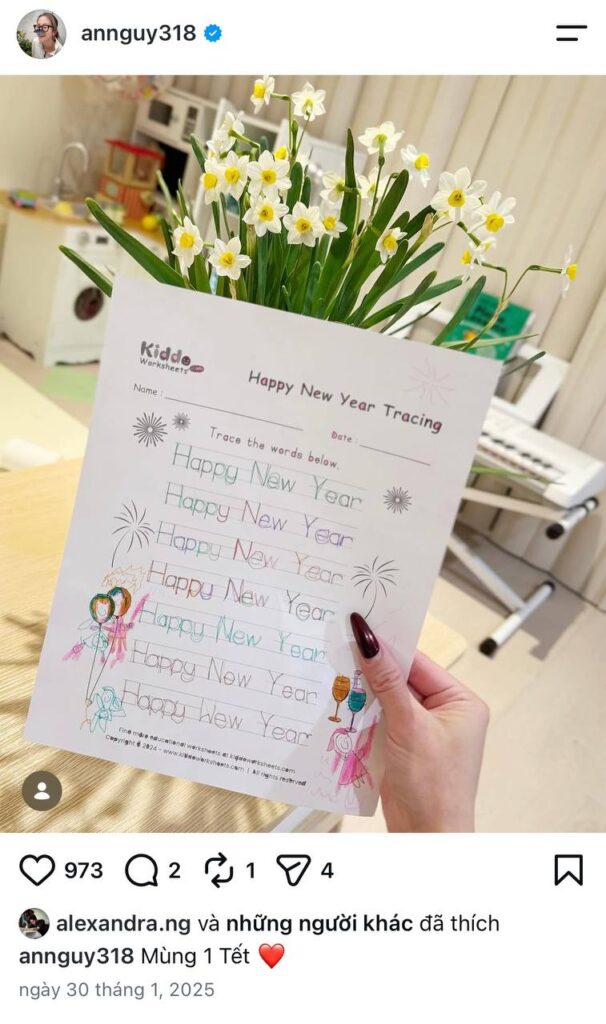 annguy318
Kiddo
Worksheets
Happy New Year Tracing
Name :
Date :
Trace the words below.
Happy New Year
Happy New Year
Happy New Year
Happy New Year
Happy New Year
Happy New Year
Happy Wew Year
Find more educational worksheets at kiddoworksheets.com
Copyright © 2024 - www.kiddoworksheets.com | All rights reserved
973 2 1 4
alexandra.ng và những người khác đã thích
annguy318 Mùng 1 Tết ❤️
ngày 30 tháng 1, 2025